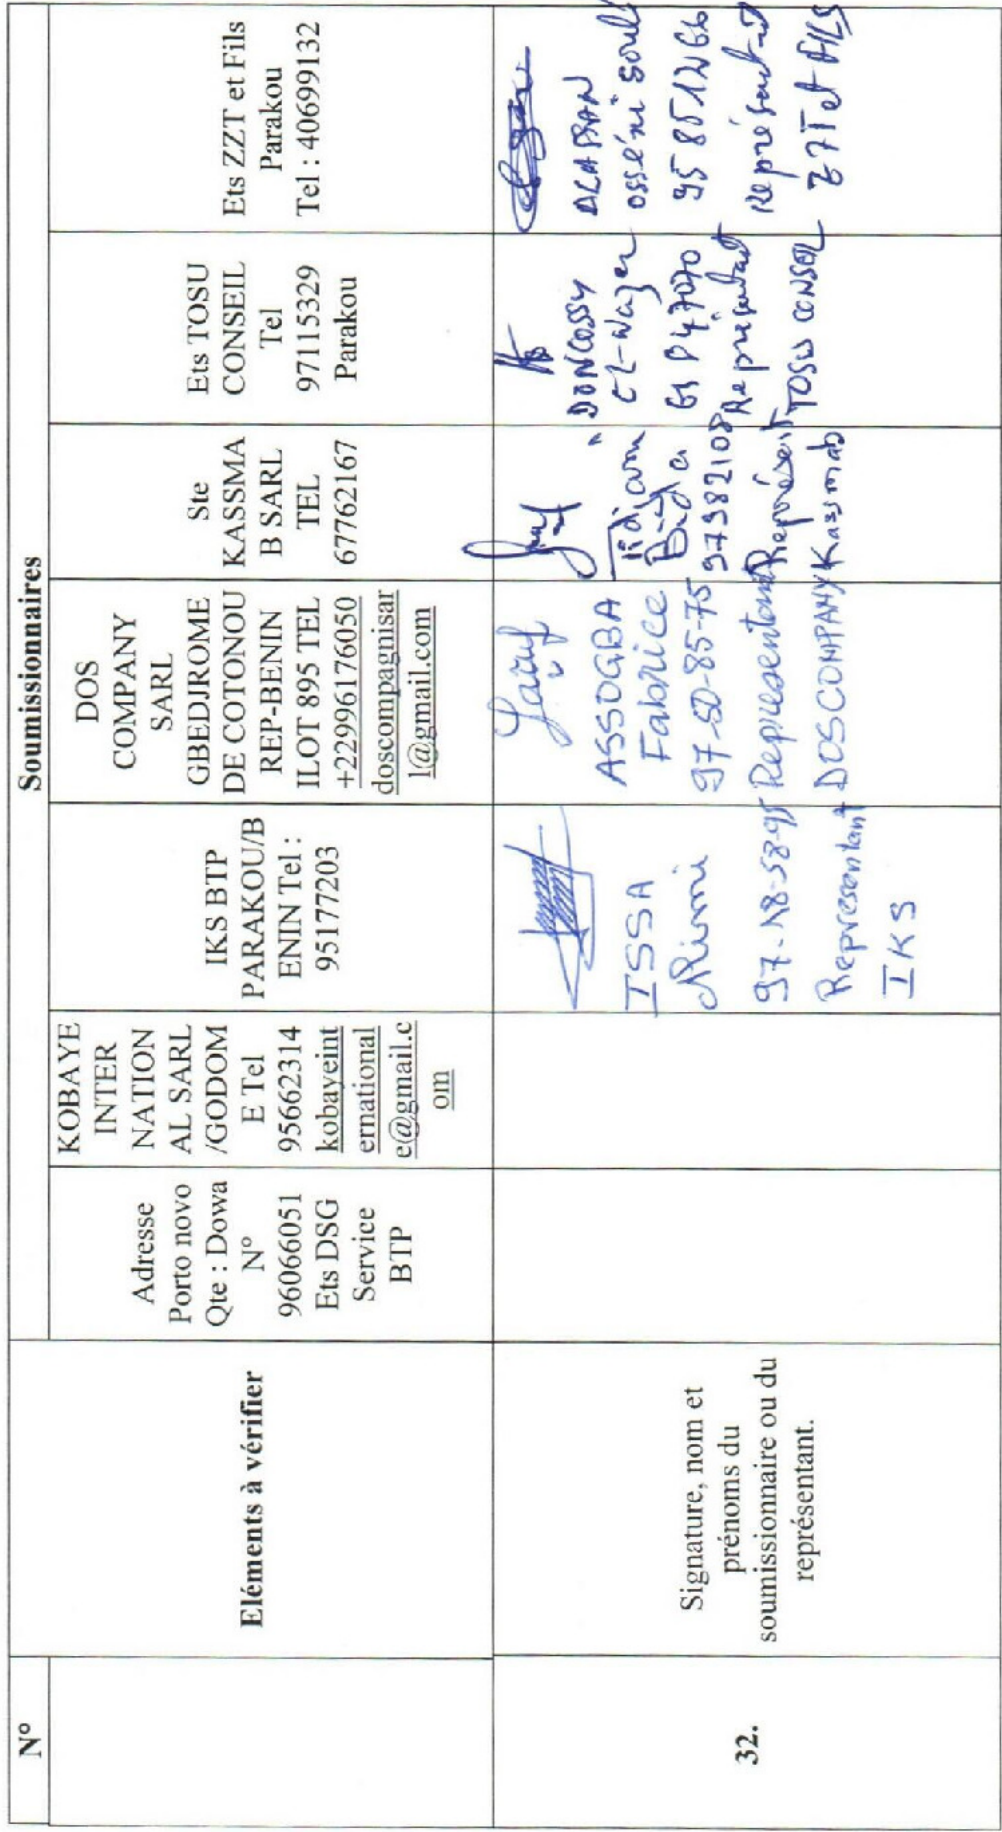 N°
Eléments à vérifier
Soumissionnaires
Adresse
Porto novo
Qte : Dowa
N°
96066051
Ets DSG
Service
BTP
KOBAYE
INTER
NATION
AL SARL
/GODOM
E Tel
95662314
kobayeint
ernational
e@gmail.c
om
IKS BTP
PARAKOU/B
ENIN Tel :
95177203
DOS
COMPANY
SARL
GBEDJROME
DE COTONOU
REP-BENIN
ILOT 895 TEL
+22996176050
doscompagnisar
l@gmail.com
Ste
KASSMA
B SARL
TEL
67762167
Ets TOSU
CONSEIL
Tel
97115329
Parakou
Ets ZZT et Fils
Parakou
Tel : 40699132
32.
Signature, nom et
prénoms du
soumissionnaire ou du
représentant.
ISSA
97-18-58-95
Representant
IKS
ASSOGBA
Fabrice
97-50-85-75
Representant
DOSCOMPANY
97982108
Représent
Kassmab
Représentant
TOSU CONSEIL
95851266
Représentant
ZZT et FILS